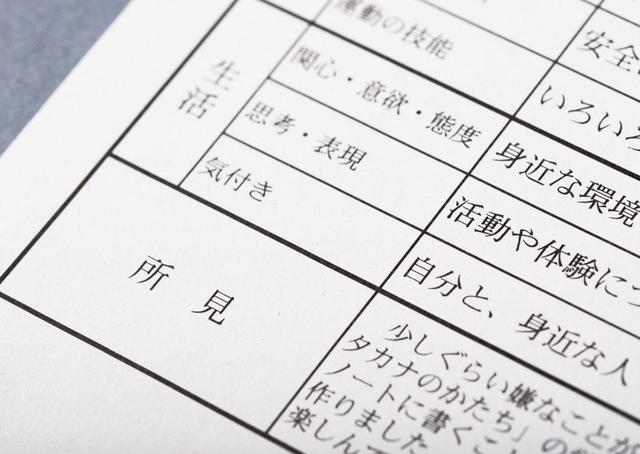 運動の技能
安全
いろいろ
生活
関心・意欲・態度
身近な環境
思考・表現
活動や体験に
気付き
自分と、身近な人
所見
少しぐらい嫌なことが
タカナのかたち」の
ノートに書くこ
作りました
楽しんで